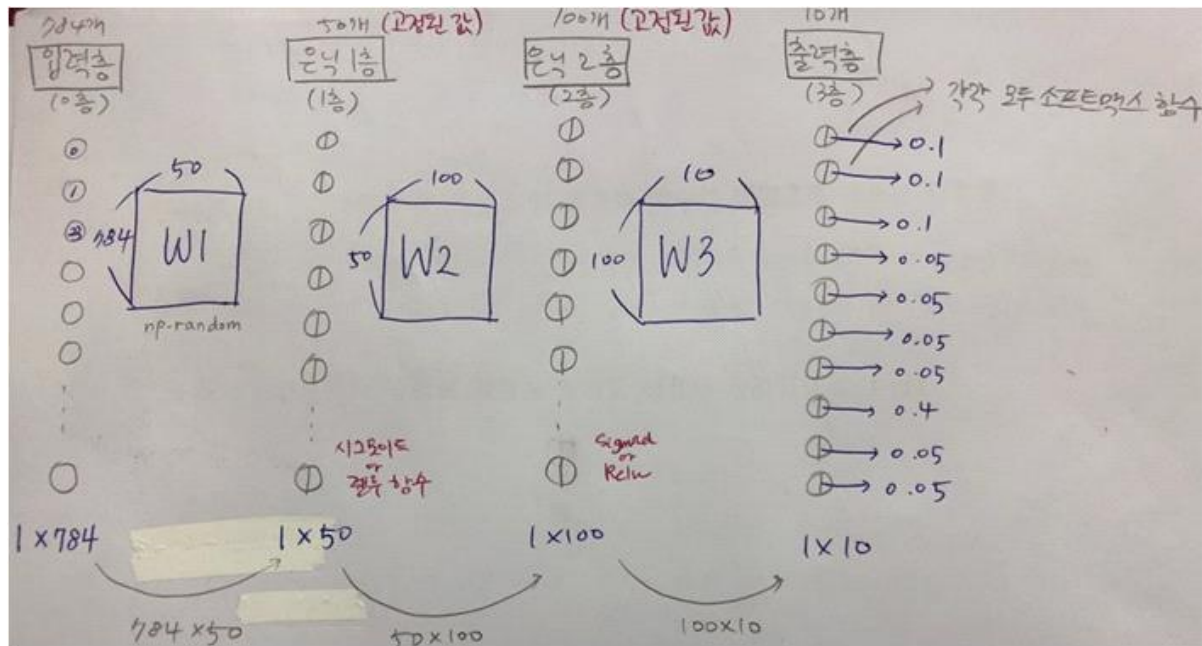 784개
입력층
(0층)
0
1
784
50
W1
np.random
1 x 784
784 x 50
50개 (고정된 값)
은닉 1층
(1층)
50
100
W2
시그모이드
or
렐루 함수
1 x 50
50 x 100
100개 (고정된 값)
은닉 2층
(2층)
100
10
W3
or
Relu
1 x 100
100x10
10개
출력층
(3층)
각각 모두 소프트맥스 함수
0.1
0.1
0.1
0.05
0.05
0.05
0.05
0.4
0.05
0.05
1 x 10